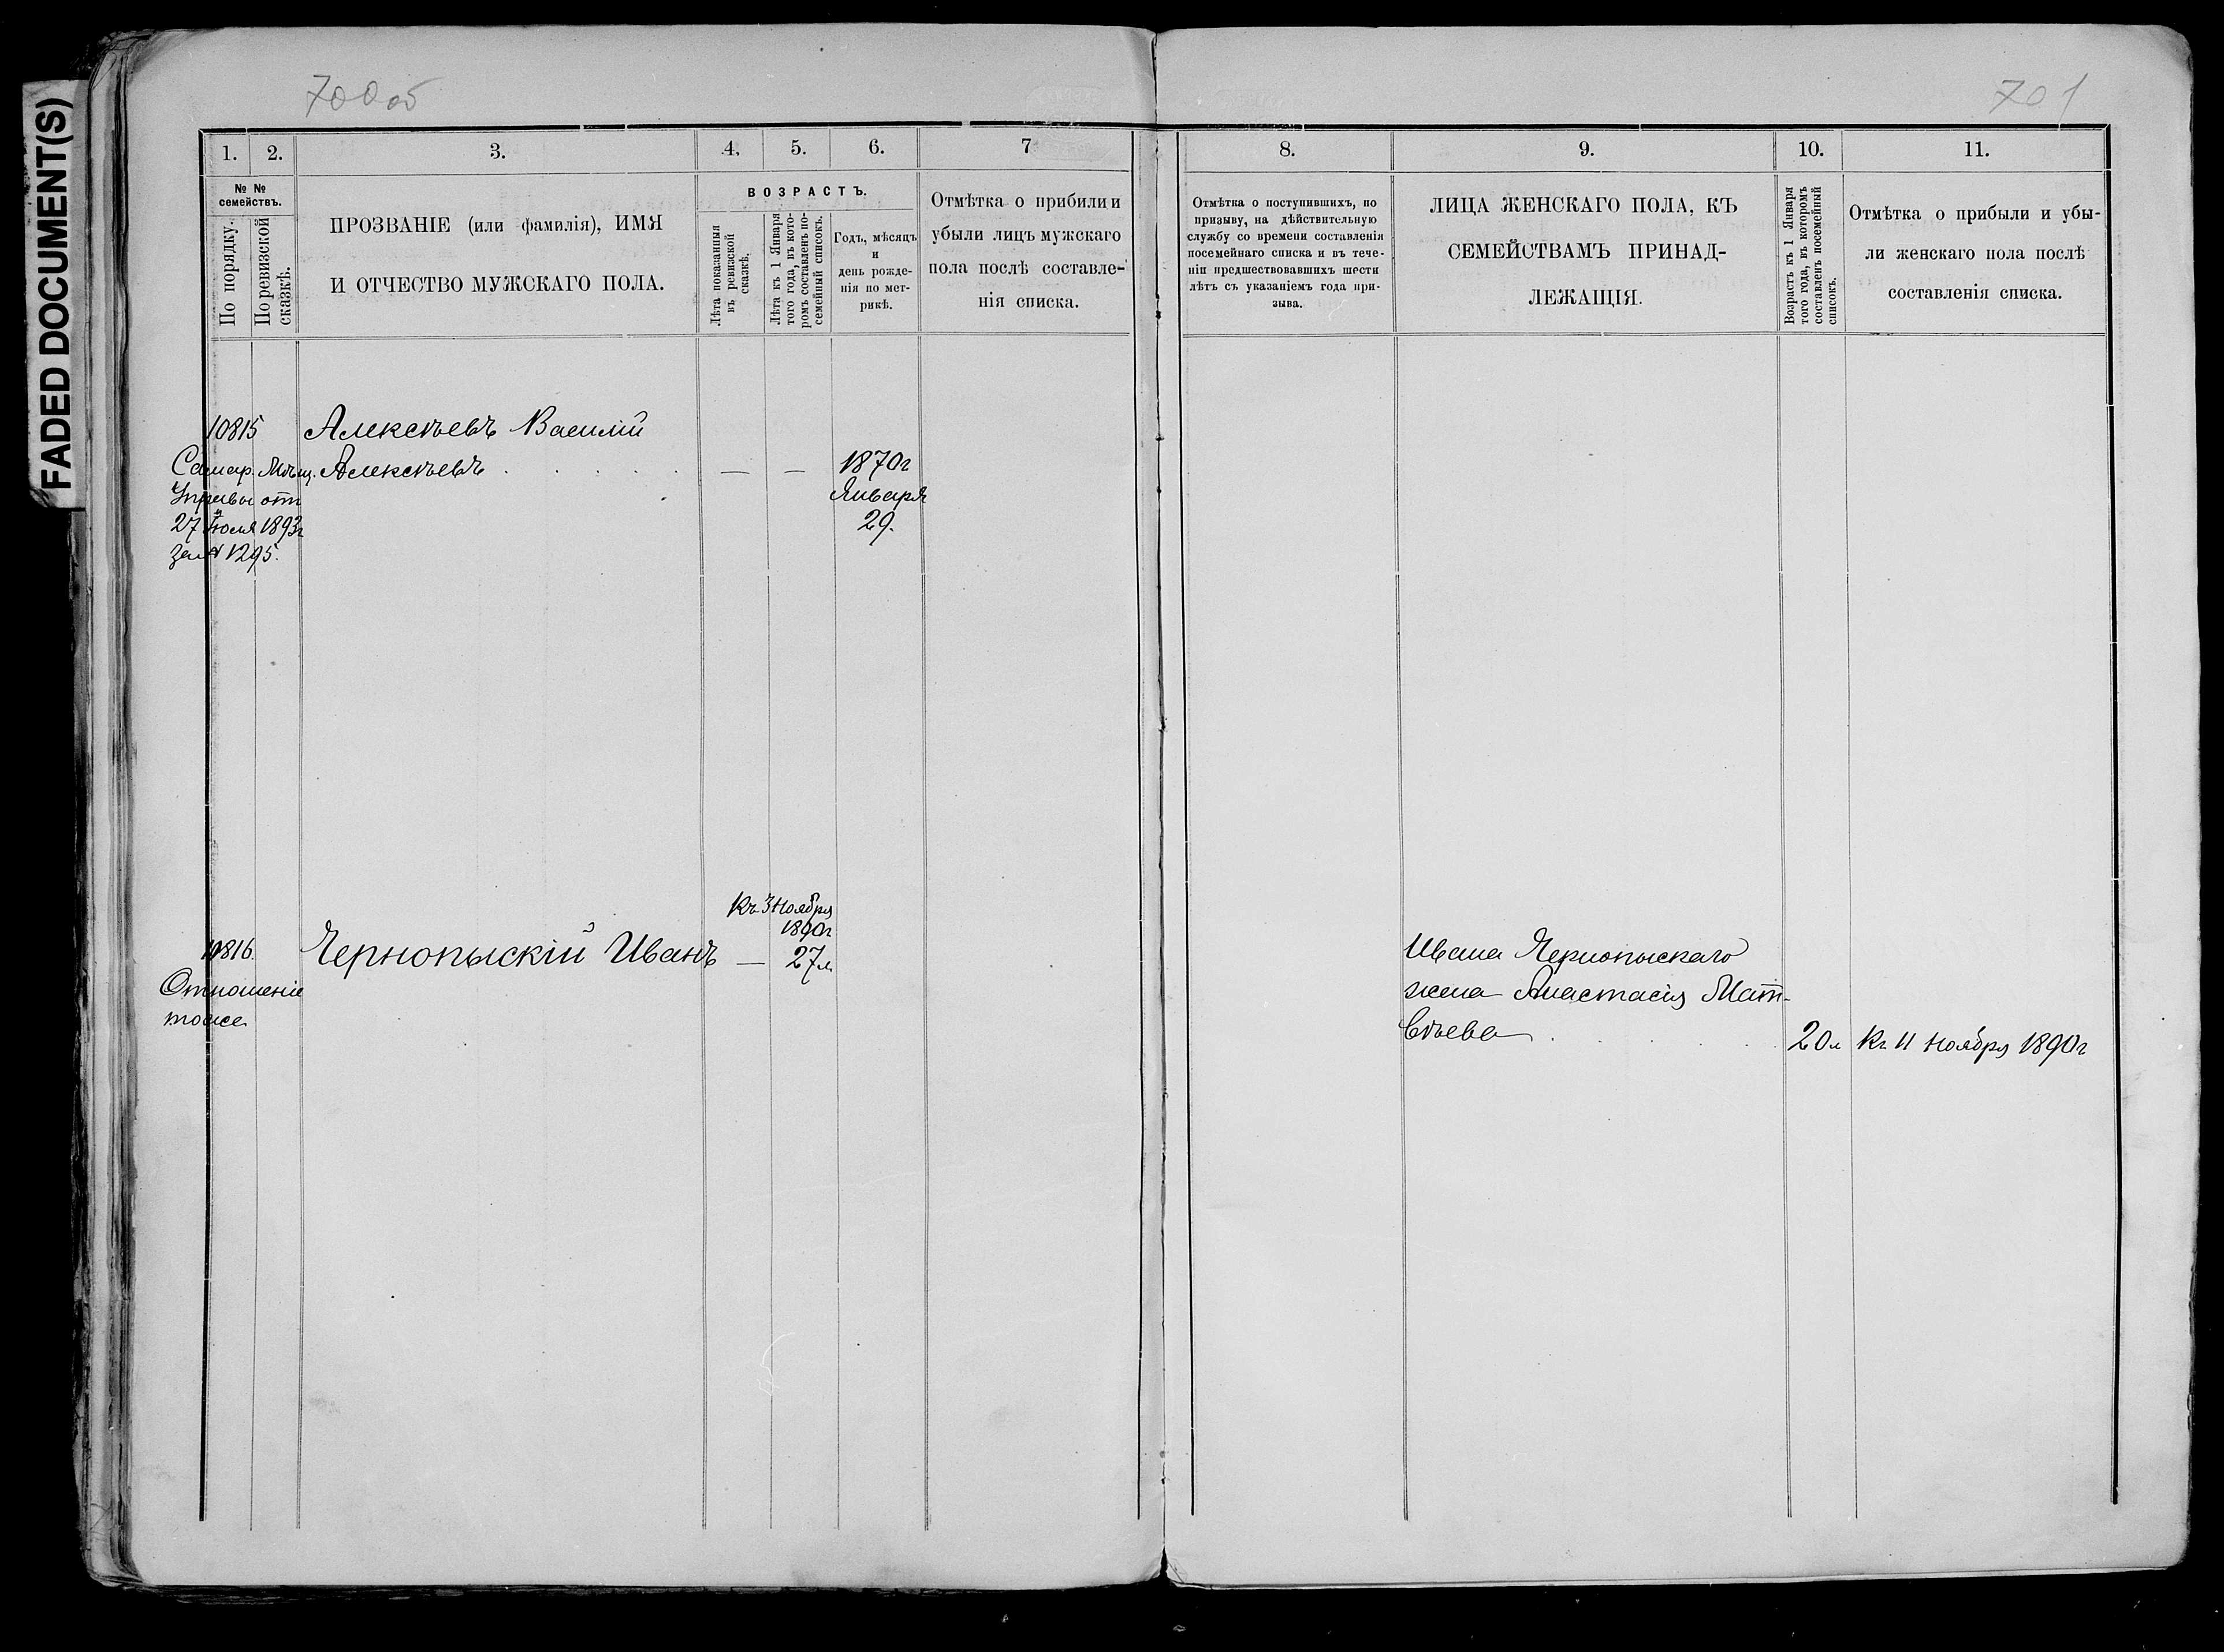 FADED DOCUMENT(S)
700 об
701
1. 2. 3. 4. 5. 6. 7
№ № семействъ.
По порядку.
По ревизской сказкѣ.
ПРОЗВАНІЕ (или фамилія), ИМЯ
И ОТЧЕСТВО МУЖСКАГО ПОЛА.
ВОЗРАСТЪ.
Лѣта показанныя
въ ревизской
сказкѣ.
Лѣта къ 1 Января
того года, въ кото-
ромъ составленъ по-
семейный списокъ.
Годъ, мѣсяцъ
и
день рожде-
нія по мет-
рикѣ.
Отмѣтка о прибыли и
убыли лицъ мужскаго
пола послѣ составле-
нія списка.
10815 Алексѣевъ Василій
Самар. Мѣщ. Алексѣевъ . . . . . — — 1870г
Управы отъ Января
27 Іюля 1893г 29.
за № 1295.
Къ 3 Ноября
1890г
10816. Чернопыскій Иванъ — 27л
Отношеніе
тоже
8. 9. 10. 11.
Отмѣтка о поступившихъ, по
призыву, на дѣйствительную
службу со времени составленія
посемейнаго списка и въ тече-
ніи предшествовавшихъ шести
лѣтъ съ указаніемъ года при-
зыва.
ЛИЦА ЖЕНСКАГО ПОЛА, КЪ
СЕМЕЙСТВАМЪ ПРИНАД-
ЛЕЖАЩІЯ.
Возрастъ къ 1 Января
того года, въ которомъ
составленъ посемейный
списокъ.
Отмѣтка о прибыли и убы-
ли женскаго пола послѣ
составленія списка.
Ивана Чернопыскаго
жена Анастасія Мат-
вѣева . . . . . 20л Къ 11 Ноября 1890г